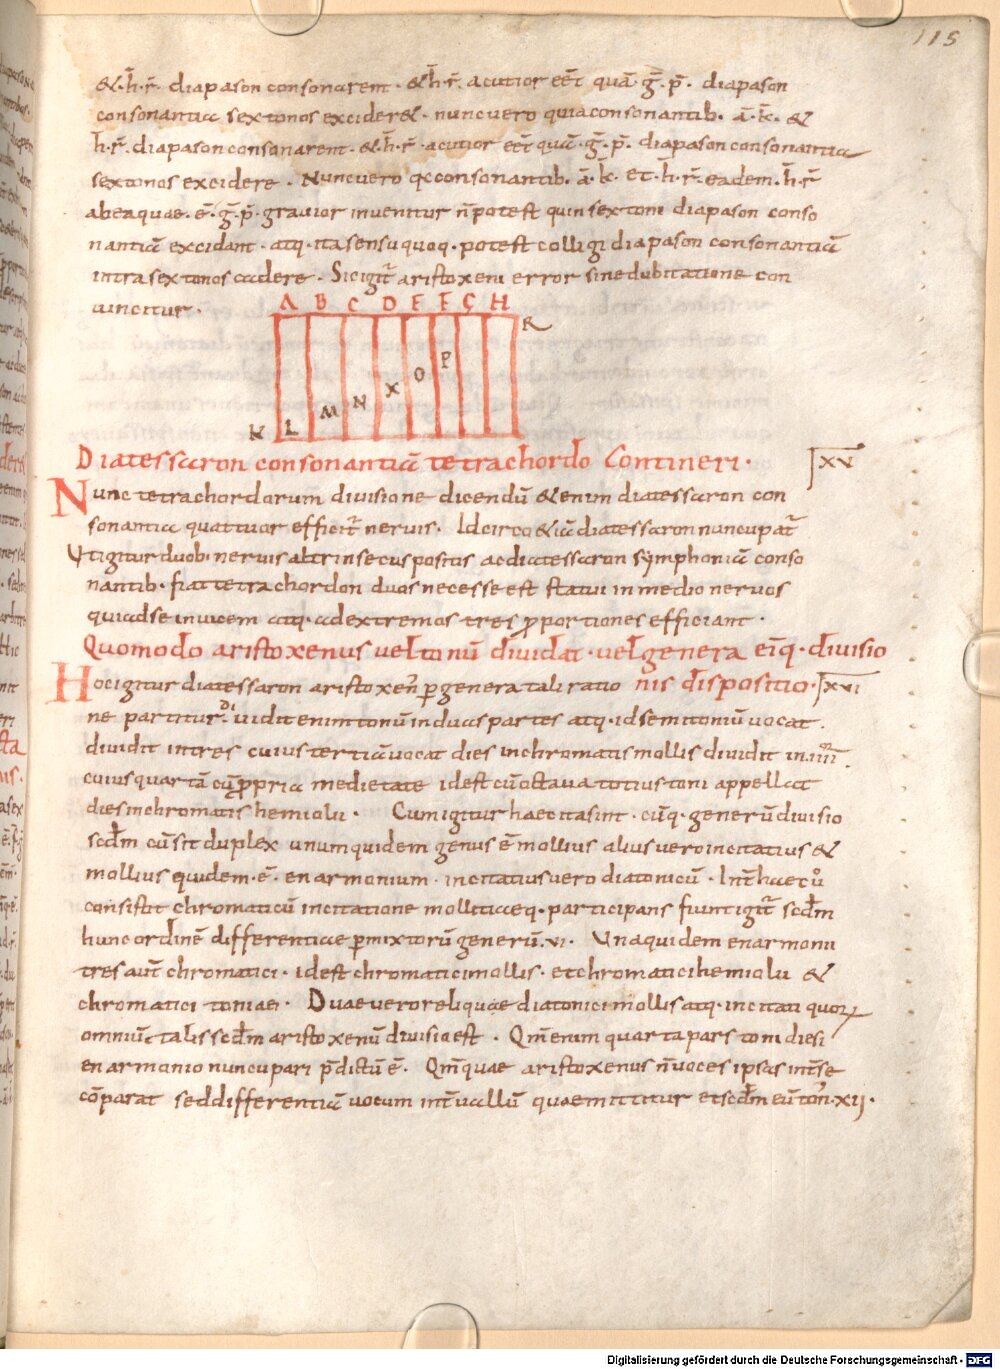 115
&·h̄·r̄· diapason consonarent· &h̄·r̄· acutior eēt quā·ḡ·p̄· diapason
consonantia sex tonos excider&· nunc vero quia consonantib· ā·k̄· &
h̄·r̄· diapason consonarent· &h̄·r̄· acutior eēt quā·ḡ·p̄· diapason consonantia
sextonos excidere· Nunc vero qa consonantib· ā·k̄· et·h̄·r̄· eadem·h̄·r̄
ab ea quae·ē·ḡ·p̄· gravior invenitur n̄ potest quin sex toni diapason conso
nantiā excidant· atq· ita sensu quoq· potest colligi diapason consonantiā
intra sex tonos cadere· Sic igit̄ aristoxeni error sine dubitatione con
vincitur·
A B C D E F G H
R
P
O
X
N
M
K L
Diatessaron consonantiā tetrachordo Contineri· XV
Nunc tetrachordorum divisione dicendū &enim diatessaron con
sonantia quattuor effici t̄ nervis· Idcirco &iā diatessaron nuncupat̄
Vt igitur duob· nervis altrinsecus positis ac diatessaron symphoniā conso
nantib· fiat tetrachordon duos necesse est statui in medio nervos
qui ad se invicem atq· ad extremos tres ꝓportiones efficiant·
Quomodo aristoxenus vel tonū dividat· vel genera eiq· divisio
Hoc igitur diatessaron aristoxen̄ p̄ genera tali ratio nis dispositio· XVI
ne partitur· Dividit enim tonū in duas partes atq· id semitoniū vocat·
dividit in tres cuius tertiā vocat diesin chromatis mollis dividit in·iiii·
cuius quartā cū ꝓpria medietate idest cū octava totius toni appellat
diesin chromatis hemiolii· Cum igitur haec ita sint· eūq· generū divisio
scdm eū sit duplex unum quidem genus ē mollius alius vero incitatius &
mollius quidem·ē· enarmonium· incitatius vero diatonicū· Int̄ haec ů
consistit chromaticū incitatione mollitiaeq· participans fiunt igit̄ scdm
hunc ordinē differentiae p̄mixtorū generū·vi· Una quidem enarmonii
tres aut̄ chromatici· idest chromatici mollis· et chromatici hemiolii &
chromatici toniaei· Duae vero reliquae diatonici mollis atq· incitati quoꝝ
omniū talis scdm aristoxenū divisio est· Qm̄ enim quarta pars toni diesi
enarmonio nuncupari p̄dictū ē· Qm̄quae aristoxenus n̄ voces ipsas int̄ se
cōparat sed differentiā vocum int̄vallū quae mititur et scdm eū ton̄·xii·
Digitalisierung gefördert durch die Deutsche Forschungsgemeinschaft - DFG